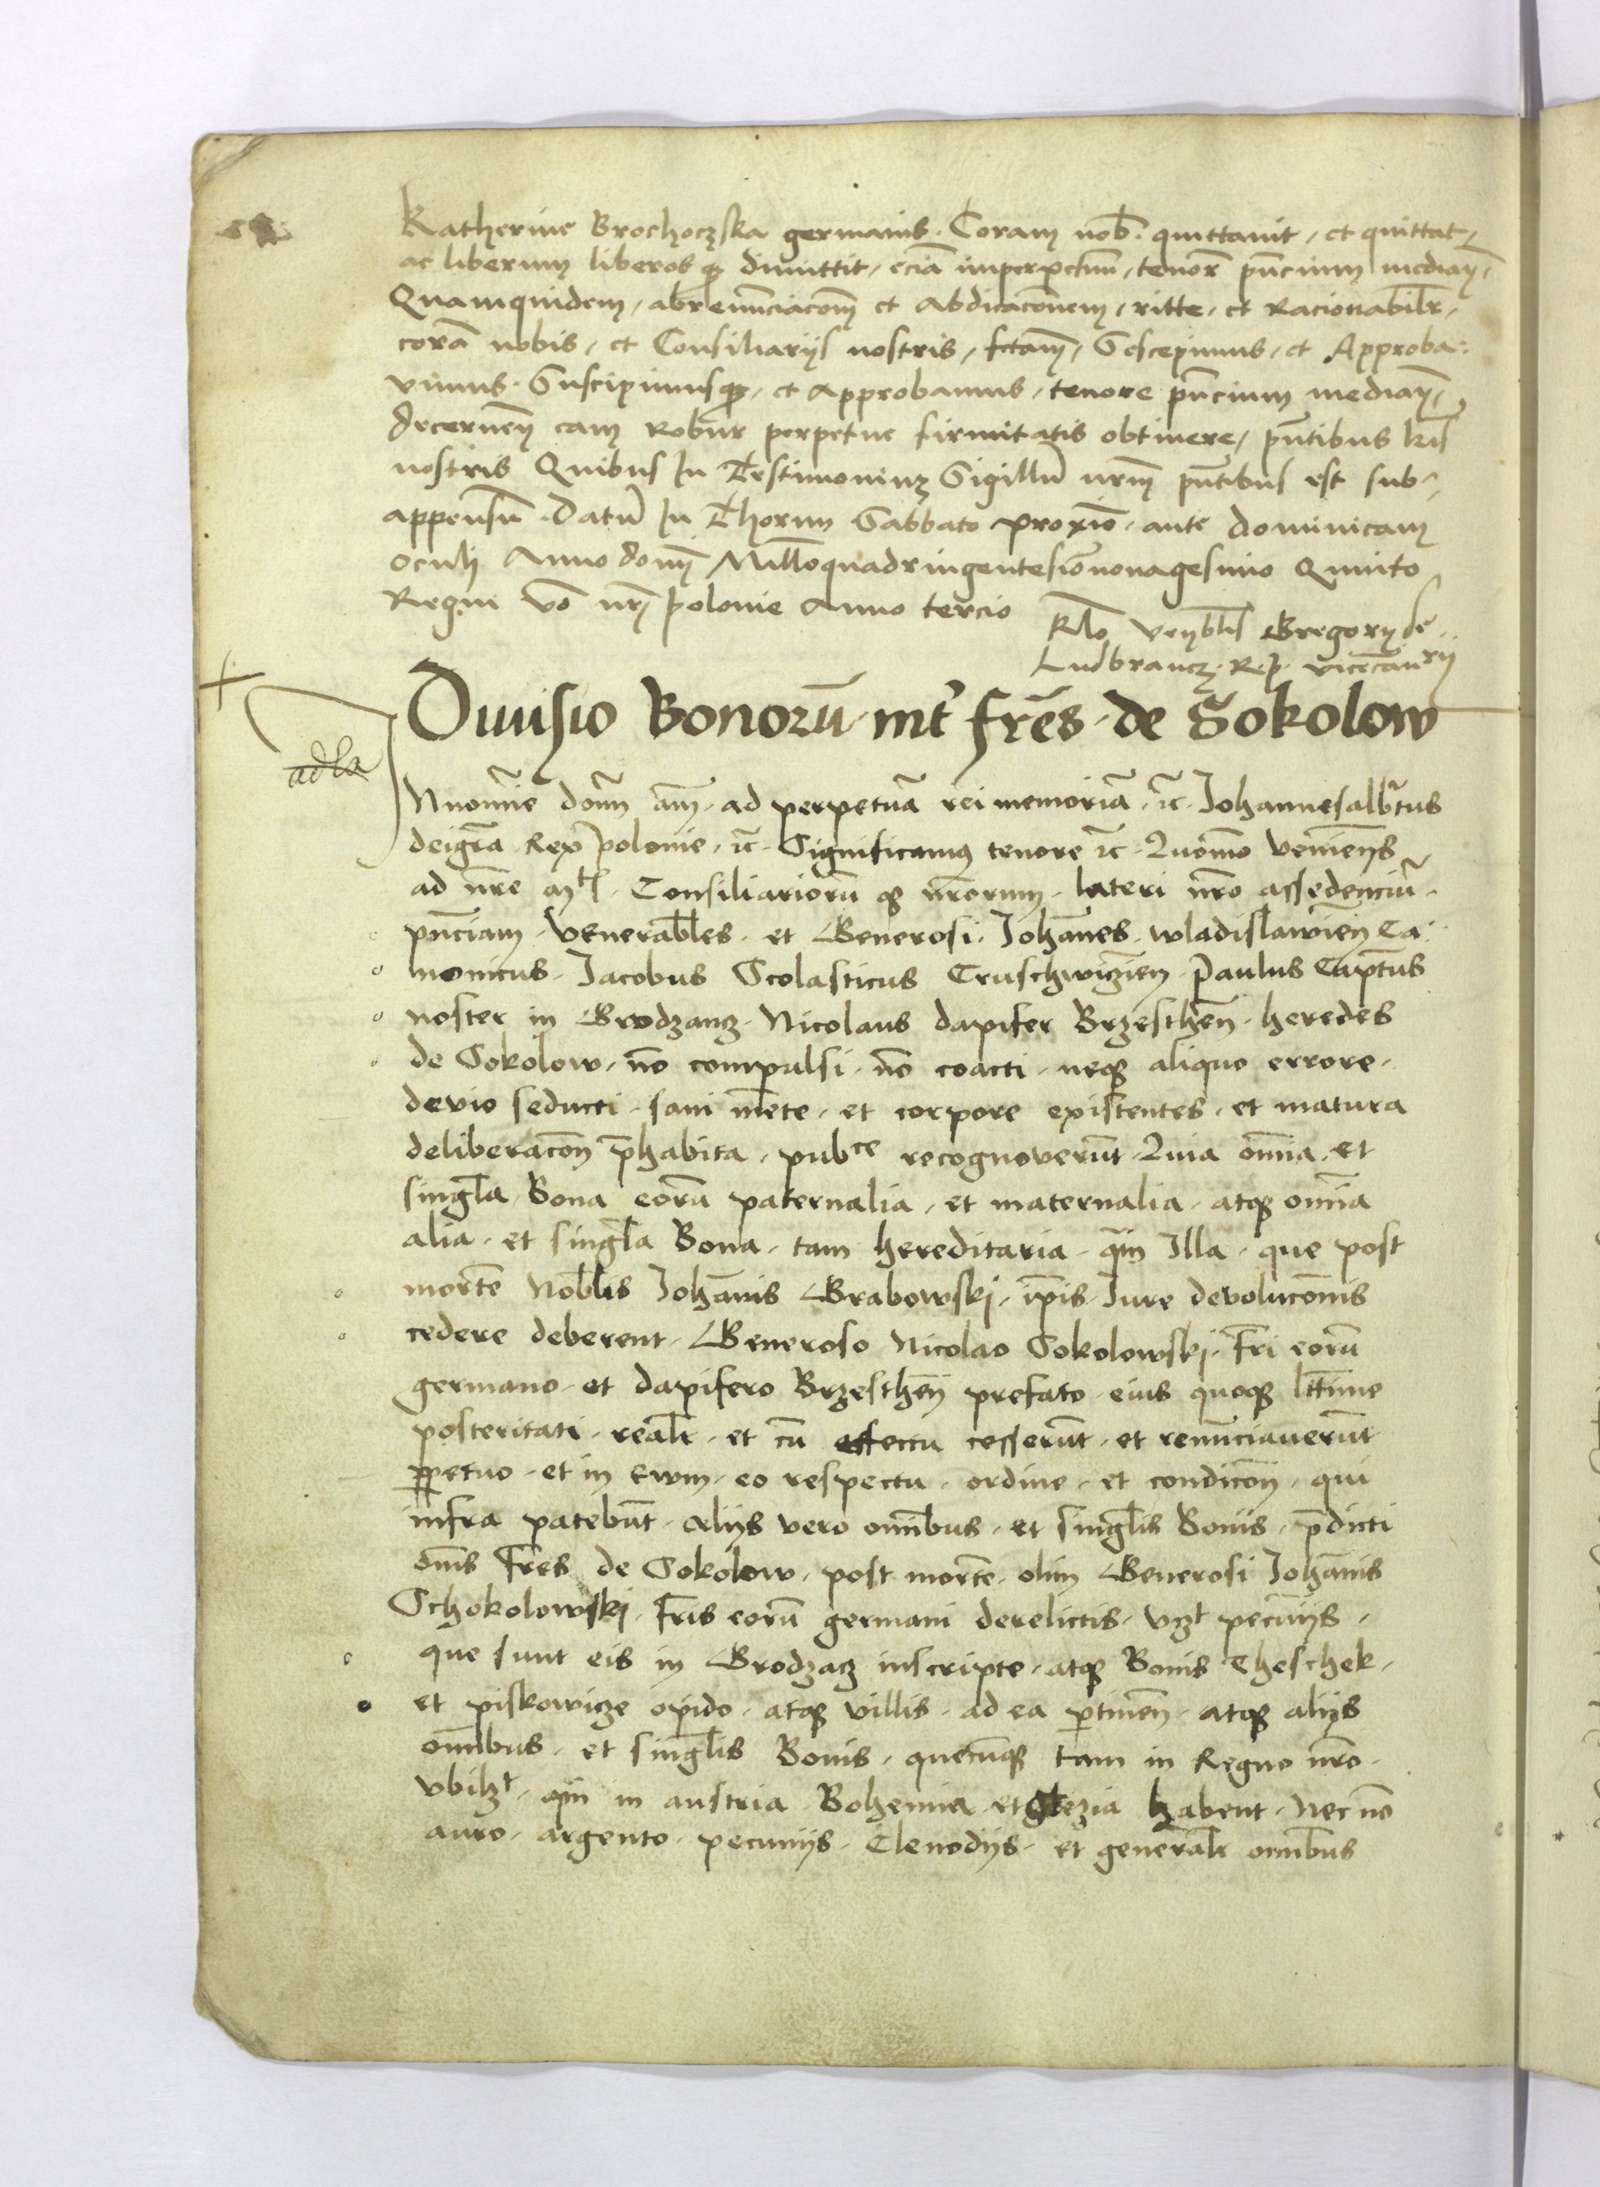 Katherine Brochoczska germanis. Coram nob. quittavit, et quittat,
ac liberum liberos q3 dimittit, eciā imperpetuū, tenor pn̄cium mediam̄,
Quamquidem, abrenūciacōm et Abdicacōnem, ritte, et Racionabilr,
corā nobis, et Consiliarijs nostris, fctam, Sescepimus, et Approba:
vimus. Suscipimusq3, et Approbamus, tenore pn̄cium mediam̄,
decerneñ eam Robur perpetue firmitatis obtinere, pn̄tibus lr̄is
nostris Quibus In Testimoniuz Sigillū nr̄m pn̄tibus est sub-
appensū. Datū In Thorun Sabbato proxīo. ante dominicam
Oculi Anno domī Millōquadringentesiōnonagesimo Quinto
Regni vō nr̄i polonie Anno tercio
Rlō venēblis Gregorij de
Ludbrancz. R. p. vicecan̄rij
adla
Divisio Bonorū int̄ fr̄es de Sokolow
Nnomīe domī am̄. ad perpetuā rei memoriā. ꝛc. Johannesalbr̄tus
deigr̄a Rex polonie. ꝛc. Significamus tenore ꝛc. Quomō venieñs
ad nr̄e mtis. Consiliariorū q3 nr̄orum. lateri nr̄o assedenciū.
pn̄ciam. venerabl̄es. et Generosi. Johānes. wladislawieñ Ca:
nonicus. Jacobus Scolasticus Cruschwiczieñ. Paulus Capt̄us
noster in Brodzancz. Nicolaus dapifer Brzestheñ. heredes
de Sokolow. nō compulsi. nō coacti. neq3 aliquo errore.
devio seducti. sani mēte. et corpore existentes. et matura
deliberacōn p̄habita. pubce recognoverūt. Quia om̄ia. et
singl̄a Bona eorū paternalia. et maternalia. atq3 om̄ia
alia. et singl̄a Bona. tam hereditaria. q̄m Illa. que post
mortē Nobl̄is Johānis Grabowskj. ip̄is Jure devolucōnis
cedere deberent. Generoso Nicolao Sokolowskj. fr̄i eorū
germano. et dapifero Brzestheñ prefato. eius quoq3 ltt̄ime
posteritati. realr̄. et cū effectu cesserūt. et renūciaverūt
ppetuo. et in Ewm. eo respectu. ordine. et condicōn. qui
infra patebūt. Alijs vero om̄ibus. et singl̄is Bonis. p̄dicti
om̄s fr̄es de Sokolow. post mortē. olim Generosi Johānis
Schokolowskj. fr̄is eorū germani derelictis. vzt pecunijs.
que sunt eis in Brodzacz inscripte. atq3 Bonis Cheschek.
et piskowicze opido. atq3 villis. ad ea ptineñ. atq3 alijs
om̄ibus. et singl̄is Bonis. quecūq3 tam in Regno nr̄o.
vbilzt. qm̄ in austria Bohemia et Slezia habent. Nec nō
auro. argento. pecunijs. Clenodijs. et generalr̄ om̄ibus